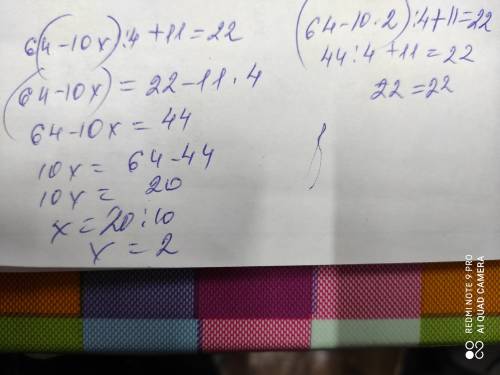 (64-10x):4+11=22
(64-10x)=22-11·4
64-10x=44
10x=64-44
10x=20
x=20:10
x=2
(64-10·2):4+11=22
44:4+11=22
22=22
REDMI NOTE 9 PRO
AI QUAD CAMERA